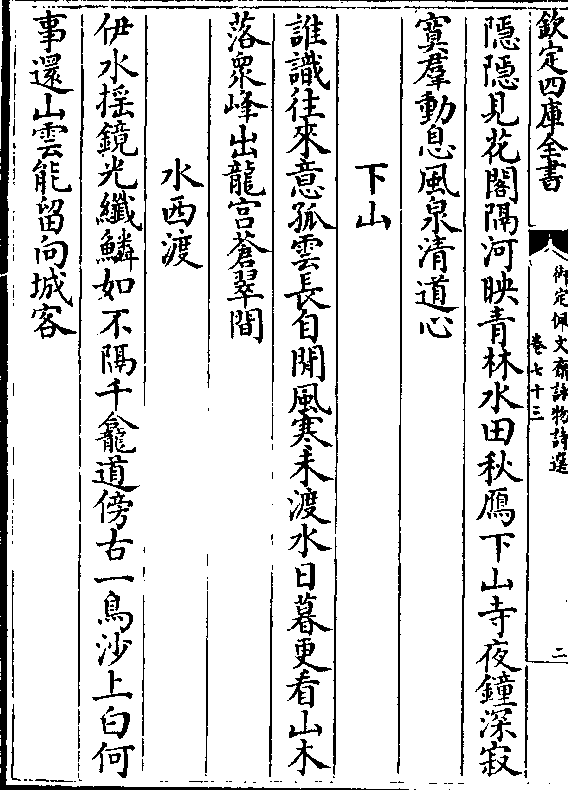 欽定四庫全書
御定佩文齋詠物詩選
卷七十三
二
隠隠見花閣隔河映青林水田秋鴈下山寺夜鐘深寂
寞羣動息風泉清道心
下山
誰識往來意孤雲長自閒風寒未渡水日暮更看山木
落衆峰出龍宫蒼翠間
水西渡
伊水揺鏡光纖鱗如不隔千龕道傍古一鳥沙上白何
事還山雲能留向城客